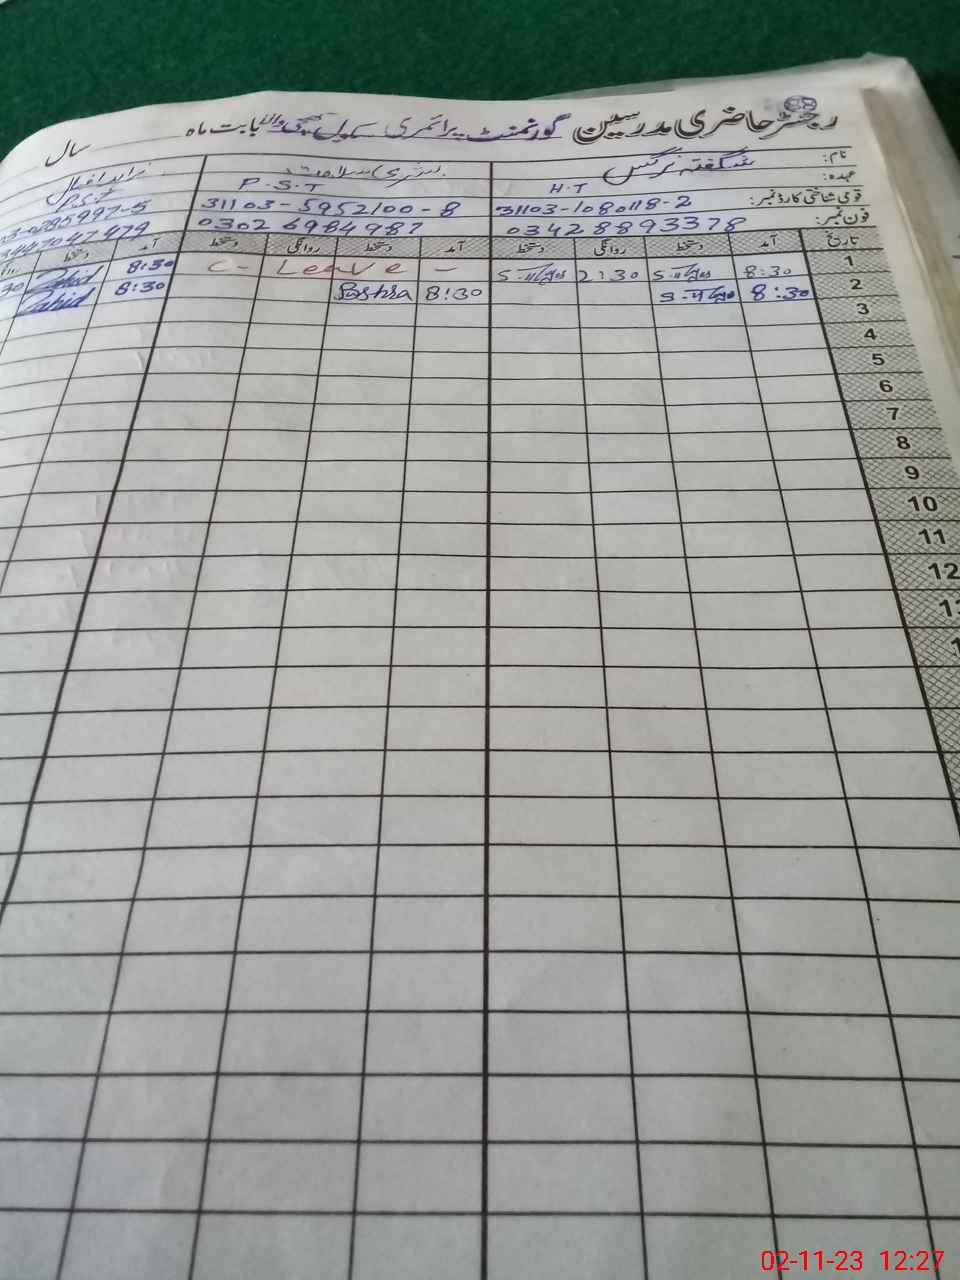 رجسٹر حاضری مدرسین گورنمنٹ پرائمری سکول بابت ماہ سال
نام: شگفتہ نرگس بشریٰ سلامت زاہد اقبال
عہدہ: H.T P.S.T P.S.T
قومی شناختی کارڈ نمبر: 31103-1080118-2 31103-5952100-8
فون نمبر: 03428893378 03026984987
تاریخ آمد دستخط روانگی دستخط آمد دستخط روانگی دستخط آمد دستخط
1 8:30 2:30 C- Leave - 8:30 Zahid
2 8:30 8:30 Boshra 8:30 Zahid
3
4
5
6
7
8
9
10
11
12
02-11-23 12:27